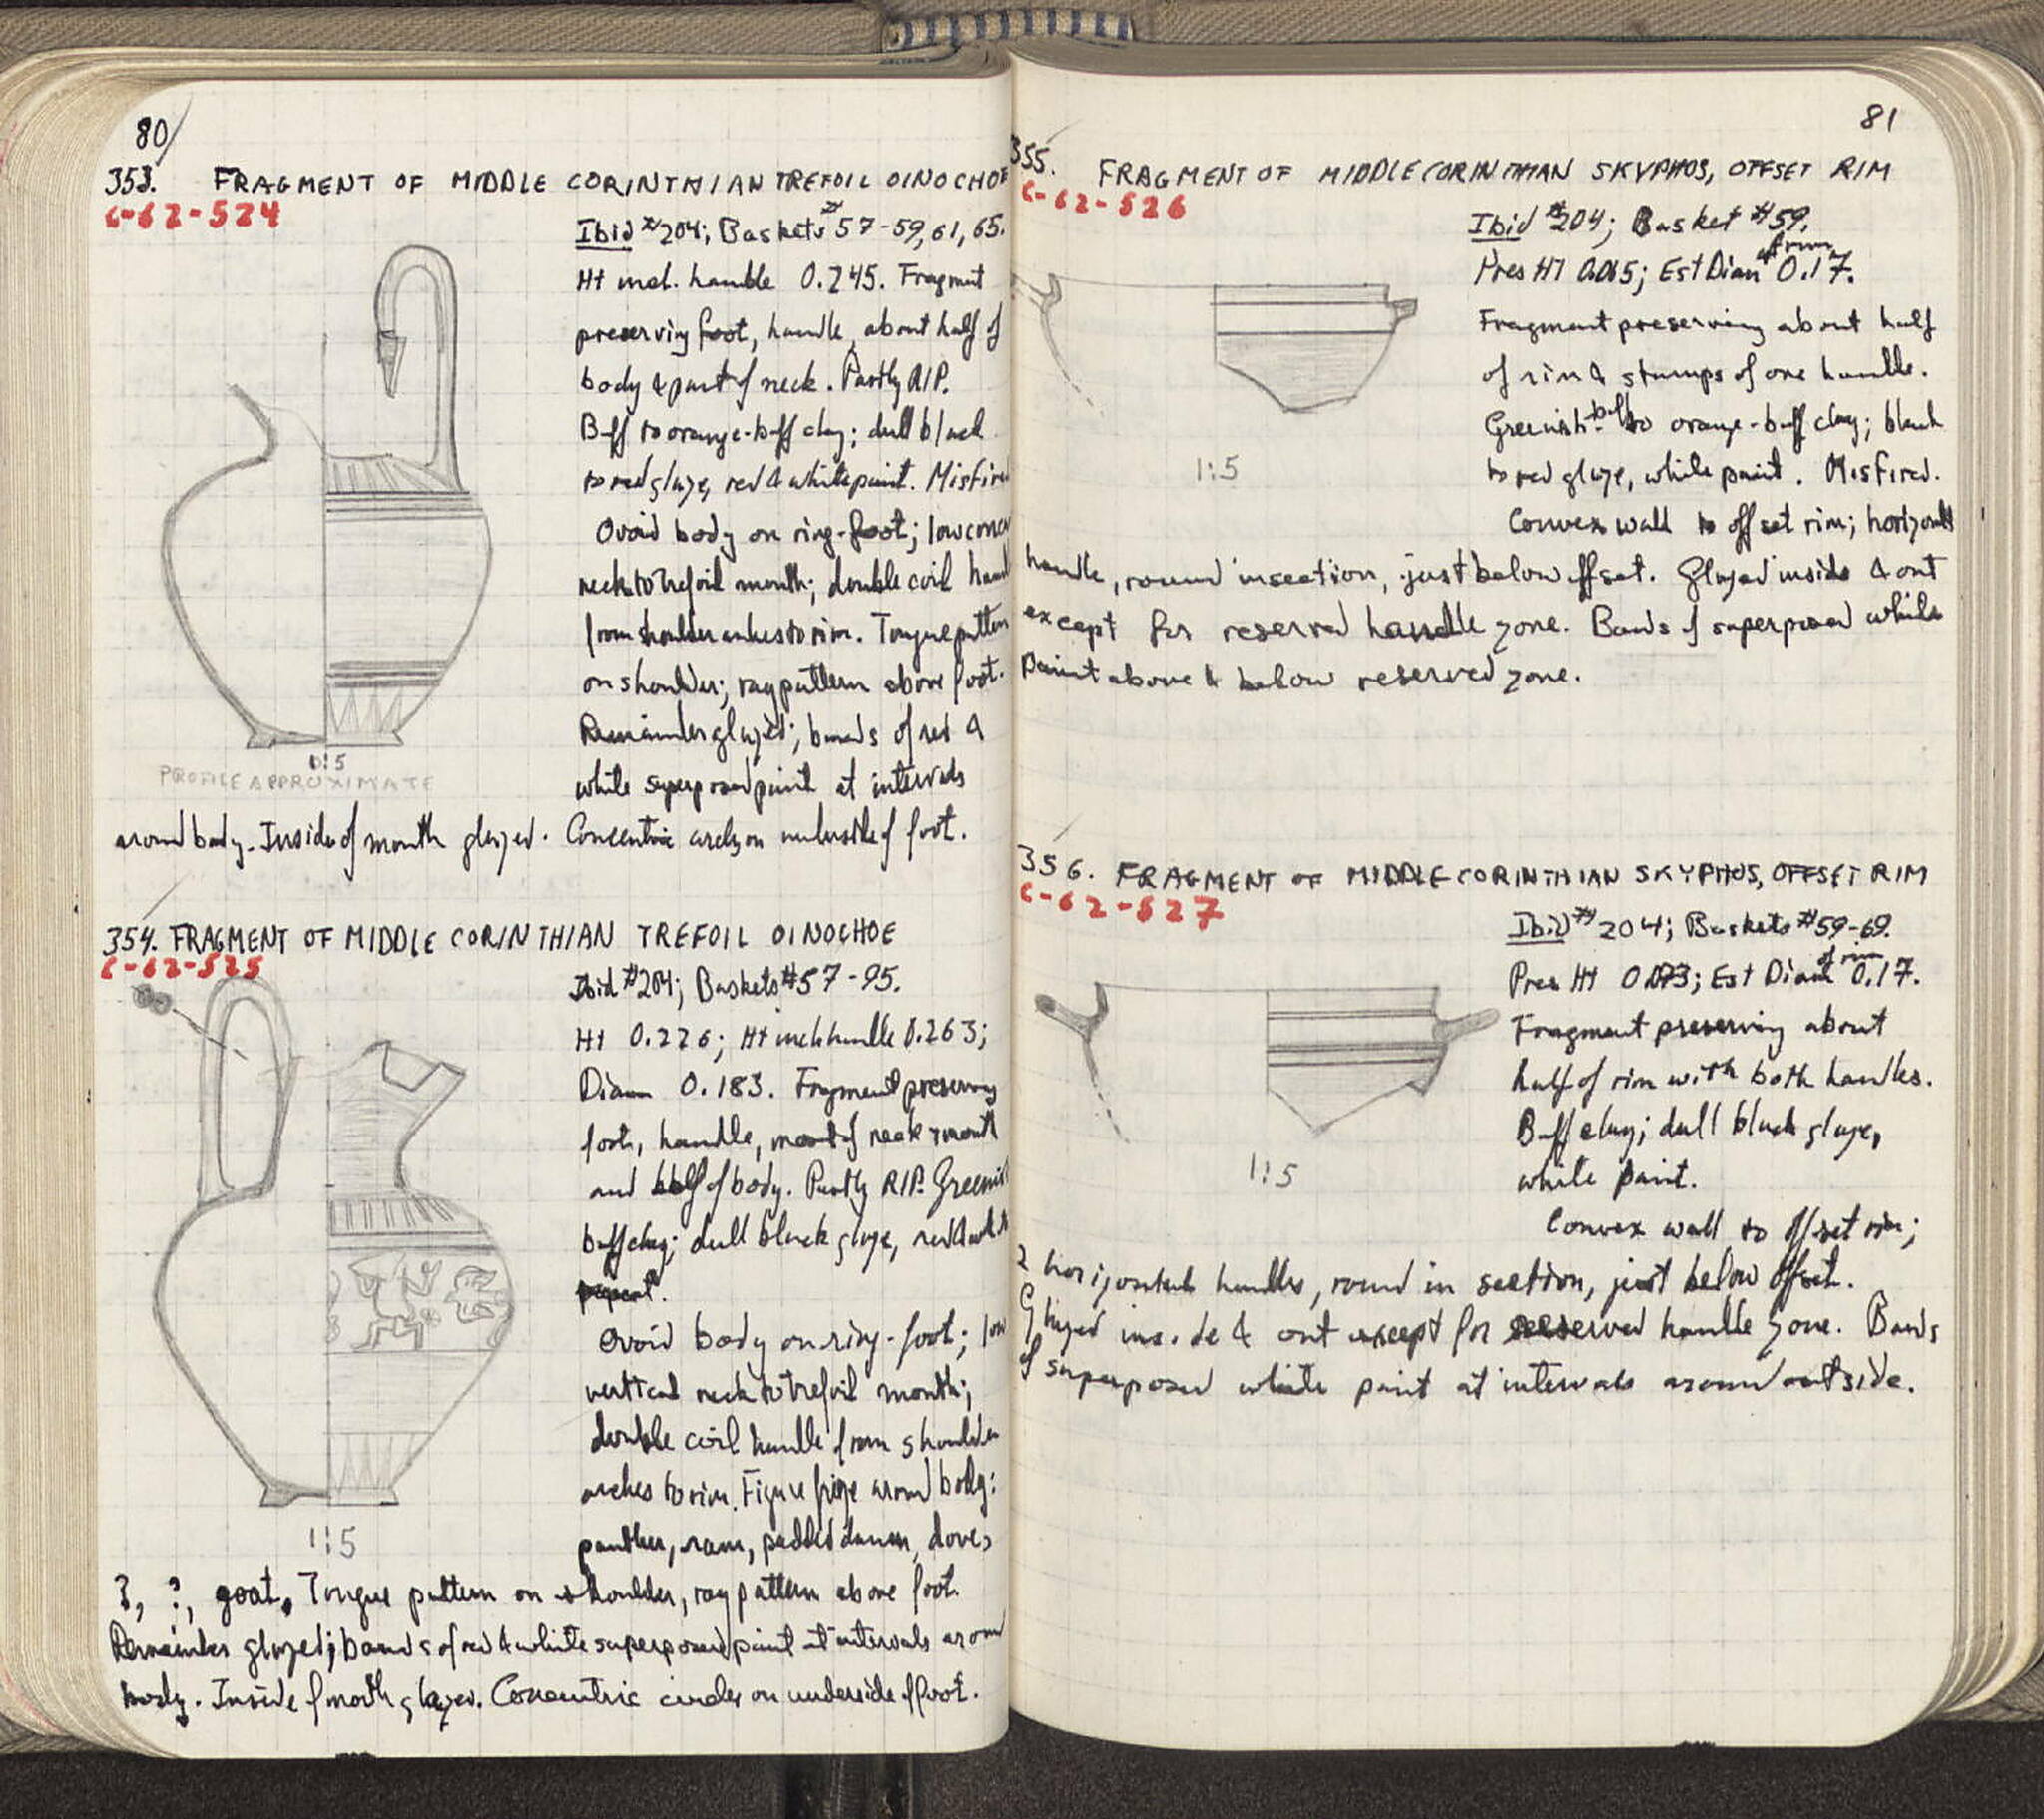 80/
353. FRAGMENT OF MIDDLE CORINTHIAN TREFOIL OINOCHOE
C-62-524
Ibid #204; Baskets # 57-59, 61, 65.
Ht incl. handle 0.245. Fragment
preserving foot, handle, about half of
body & part of neck. Partly RIP.
Buff to orange-buff clay; dull black
to red glaze, red & white paint. Misfired
Ovoid body on ring-foot; low conc
neck to trefoil mouth; double coil hand
from shoulder arches to rim. Tongue pattern
on shoulder; ray pattern above foot.
Remainder glazed; bands of red &
white superposed paint at intervals
1:5
PROFILE APPROXIMATE
around body. Inside of mouth glazed. Concentric circles on underside of foot.
354. FRAGMENT OF MIDDLE CORINTHIAN TREFOIL OINOCHOE
C-62-525
Ibid #204; Baskets #57-95.
Ht 0.226; Ht incl handle 0.263;
Diam 0.183. Fragment preserving
foot, handle, most of neck & mouth
and half of body. Partly RIP. Greenish
buff clay; dull black glaze, red & white
Ovoid body on ring-foot; low
vertical neck to trefoil mouth;
double coil handle from shoulder
arches to rim. Figure frieze around body:
panther, ram, padded dancer, dove,
1:5
?, ?, goat. Tongue pattern on shoulder, ray pattern above foot.
Remainder glazed; bands of red & white superposed paint at intervals around
body. Inside of mouth glazed. Concentric circles on underside of foot.
81
355. FRAGMENT OF MIDDLE CORINTHIAN SKYPHOS, OFFSET RIM
C-62-526
Ibid #204; Basket #59.
Pres Ht 0.065; Est Diam of rim 0.17.
Fragment preserving about half
of rim & stumps of one handle.
Greenish-buff to orange-buff clay; black
to red glaze, white paint. Misfired.
1:5
Convex wall to offset rim; horizontal
handle, round in section, just below offset. Glazed inside & out
except for reserved handle zone. Bands of superposed white
paint above & below reserved zone.
356. FRAGMENT OF MIDDLE CORINTHIAN SKYPHOS, OFFSET RIM
C-62-527
Ibid # 204; Baskets #59-69.
Pres Ht 0.073; Est Diam of rim 0.17.
Fragment preserving about
half of rim with both handles.
Buff clay; dull black glaze,
white paint.
1:5
Convex wall to offset rim;
2 horizontal handles, round in section, just below offset.
Glazed inside & out except for reserved handle zone. Bands
of superposed white paint at intervals around outside.